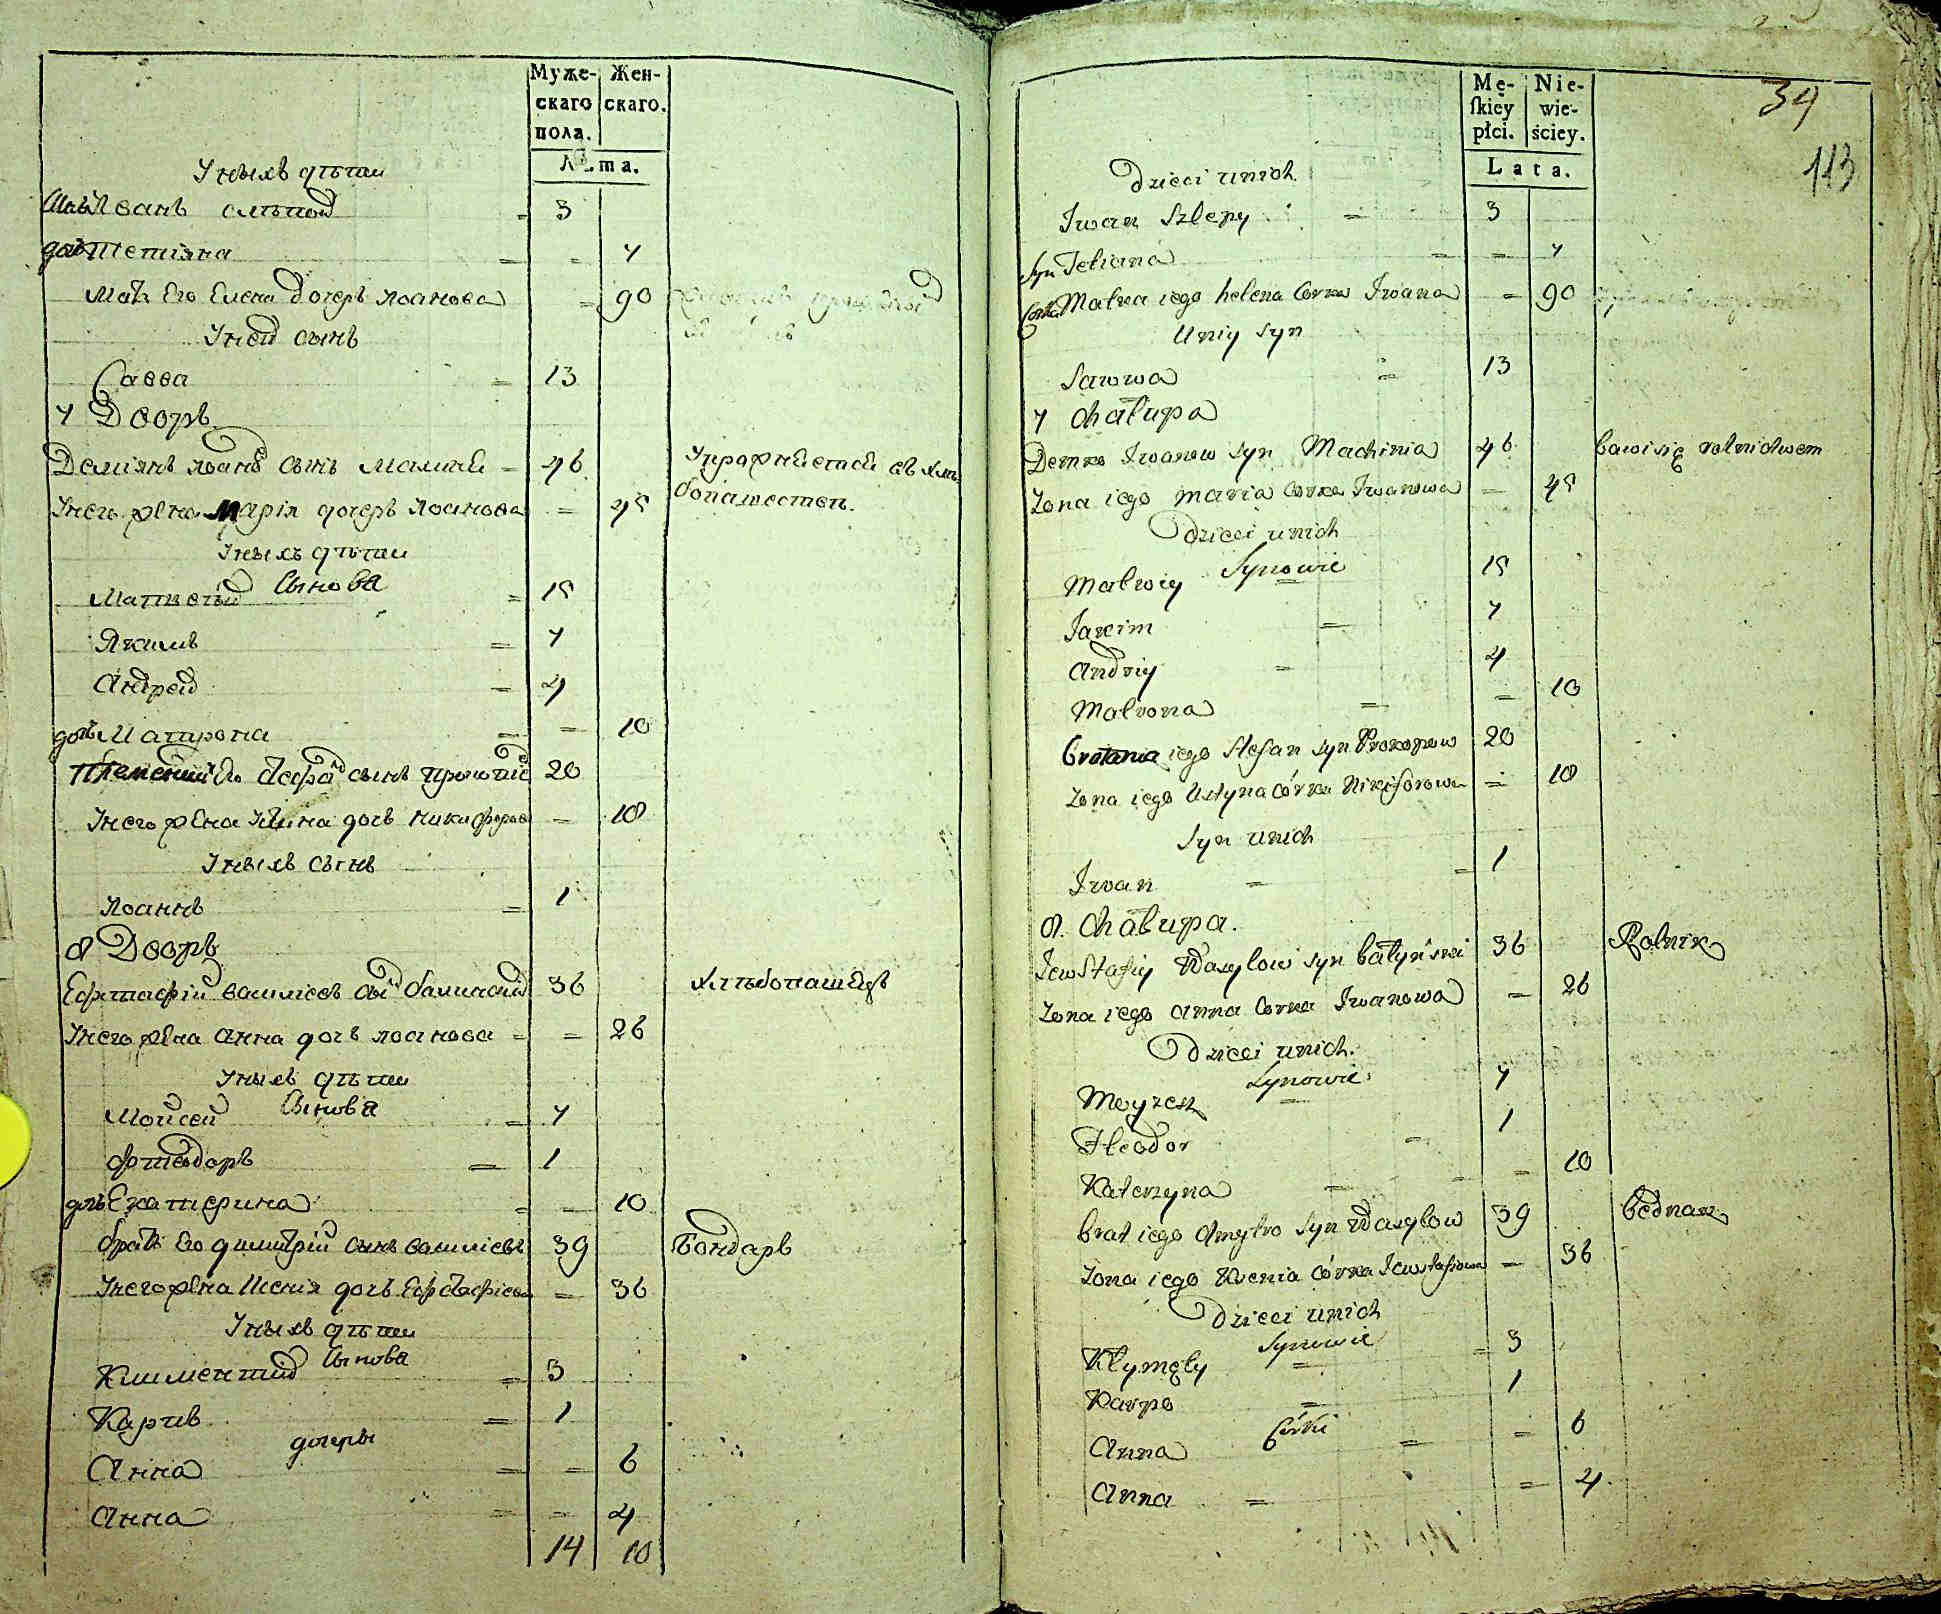 Муже-
скаго
пола.
Жен-
скаго.
Лѣта.
У ныхъ дѣти
Иванъ слѣпой = 3
дочь Тетіяна = - 7
Мать Его Елена дочерь Іоанова = 90
У ней сынъ
Савва = 13
7 Дворъ
Деміянъ Іоановъ сынъ = 46
У него жена Марія дочерь Іоанова = 45
У ныхъ дѣти
Сынова
Матвей = 15
Якимъ = 7
Андрей = 4
дочь Матрона = - 10
Племенникъ Его Стефанъ сынъ 20
У него жена дочь Никифорова - 18
У ныхъ сынъ
Іоаннъ = 1
8 Дворъ
Евстафій василіевъ 36 хлѣбопашецъ
У него жена Анна дочь Іоанова = = 26
У ныхъ дѣти
Сынова
Мойсей = 7
Ѳеодоръ = 1
дочь Екатерина = - 10
братъ Его димитрій сынъ василіевъ 39 Бондарь
У него жена дочь Евстафіева - 36
У ныхъ дѣти
Сынова
Климентій = 3
Карпъ = 1
дочеры
Анна = - 6
Анна = - 4
14 10
Mę-
ſkiey
płci.
Nie-
wie-
ściey.
Lata.
34
113
Dzieci unich
Iwan Szlepy = 3
Syn Tetiana = - 7
Corka Matka iego helena Corka Iwana = 90
Uniy Syn
Sawwa = 13
7 Chałupa
Demko Iwanow Syn Machinia 46 bawi się rolnictwem
Zona iego Maria Corka Iwanowa - 45
Dzieci unich
Synowie
Matwiy 15
Jakim = 7
Andriy = 4
Matrona = - 10
iego Stefan Syn Prokopow 20
Zona iego Ustyna Córka Nikiforowa = 18
Syn unich
Iwan = 1
8. Chałupa.
Jewstafiy Wasylow Syn 36 Rolnik
Zona iego Anna Corka Iwanowa - 26
Dzieci unich.
Synowie
Moyzesz = 7
Fteodor - 1
Katerzyna - 10
brat iego Dmytro Syn Wasylow 39 bednarz
Zona iego Ksenia Córka Jewstafiowa - 36
Dzieci unich
Synowie
Kłymęty = 3
Karpo = 1
Córki
Anna = - 6
Anna = = 4